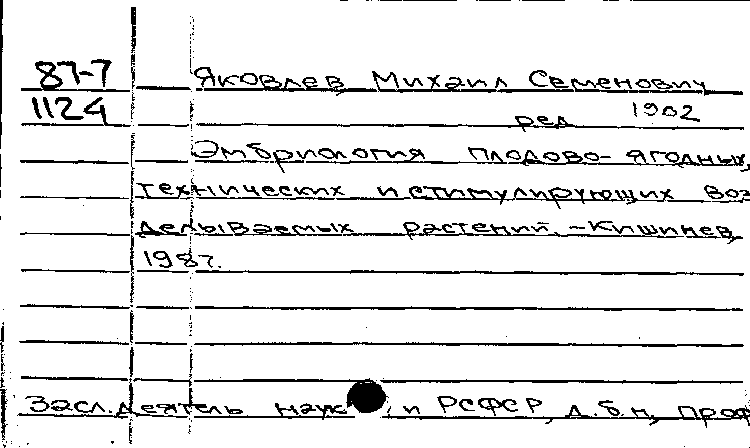 87-7 Яковлев Михаил Семенович
1124 ред 1902
Эмбриология плодово-ягодных,
технических и стимулирующих воз
делываемых растений. -Кишинев,
1987.
Засл.деятель наук и РСФСР, д.б.н, проф